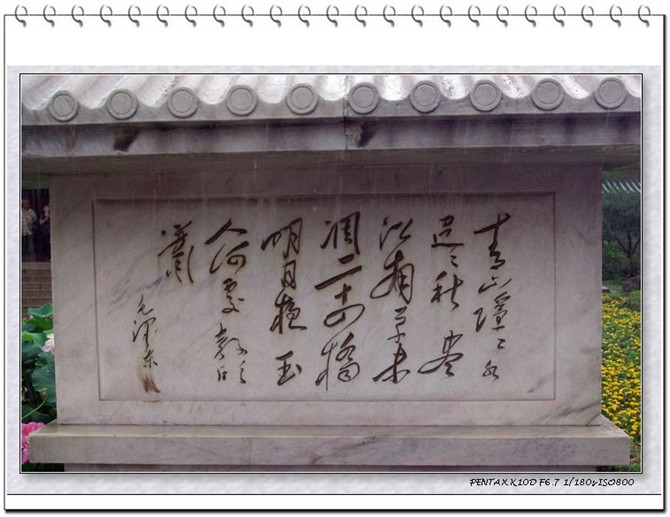 青山隱隱水
迢迢秋盡
江南草未
凋二十四橋
明月夜玉
人何處教吹
簫
毛澤東
PENTAX K10D F6.7 1/180s ISO800